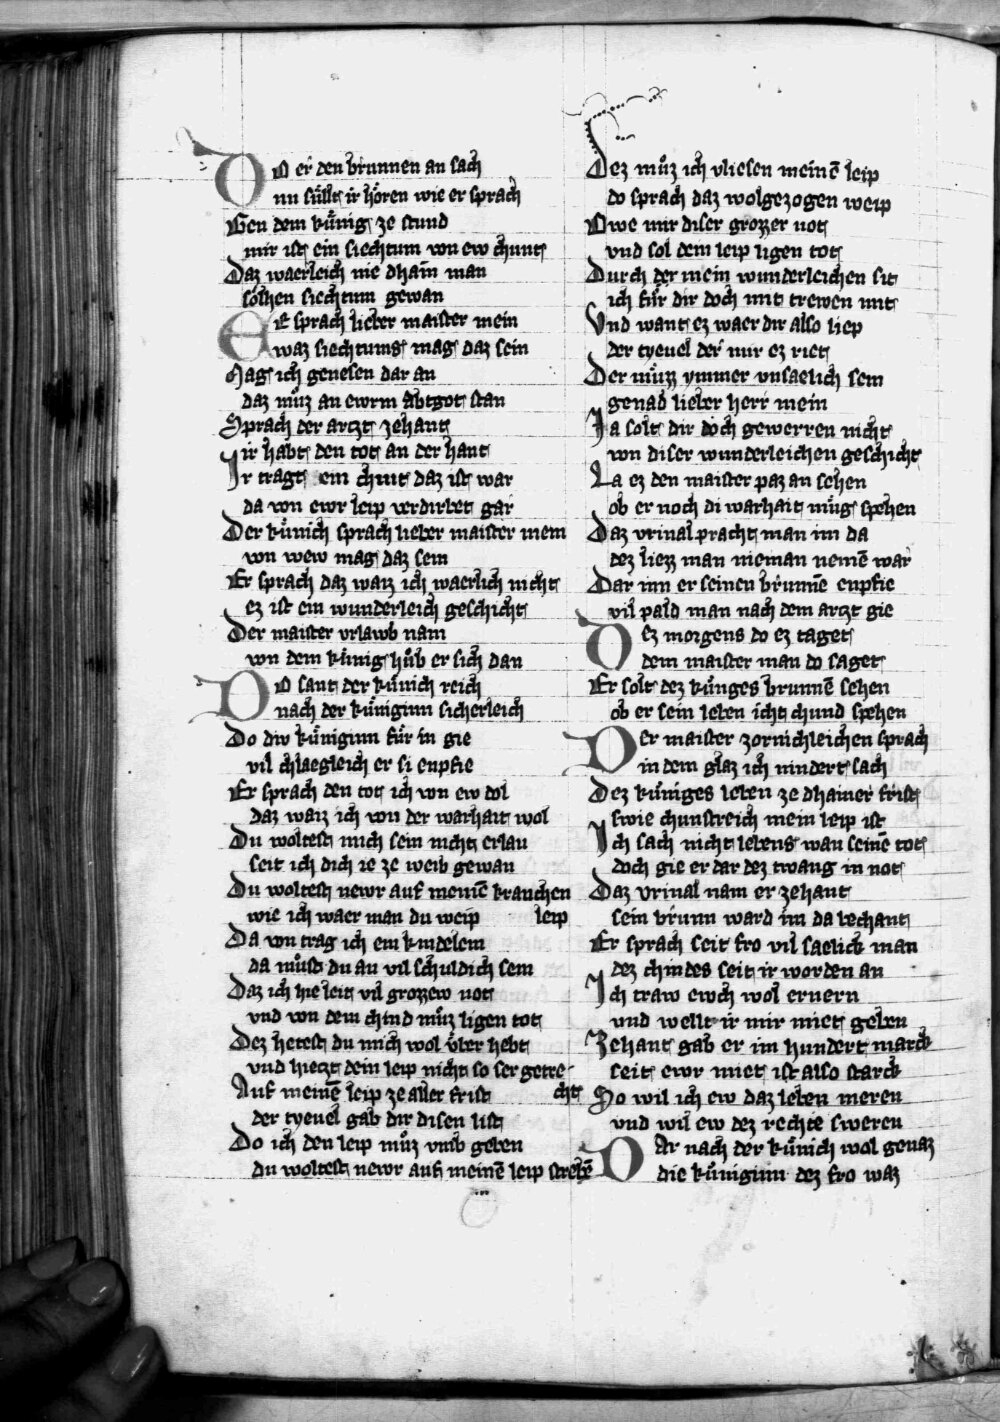 Do er den brunnen an sach
nu sült ir hören wie er sprach
Gen dem künig ze stund
mir ist ein siechtum von ew chunt
Daz waerleich nie dhain man
sölhen siechtum gewan
Er sprach lieber maister mein
waz siechtums mag daz sein
Mag ich genesen dar an
daz müz an ewrm abtgot stan
Sprach der artzt zehant
ir habt den tot an der hant
Ir tragt ein chint daz ist war
da von ewr leip verdirbet gar
Der künich sprach lieber maister mein
von wew mag daz sein
Er sprach daz waiz ich waerlich nicht
ez ist ein wunderleich geschicht
Der maister vrlawb nam
von dem künig hůb er sich dan
Do sant der künich reich
nach der küniginn sicherleich
Do diw küniginn für in gie
vil chlaegleich er si enpfie
Er sprach den tot ich von ew dol
daz waiz ich von der warhait wol
Du woltest mich sein nicht erlan
seit ich dich ie ze weib gewan
Du woltest newr auf meinē kranchen
wie ich waer man du weip leip
Da von trag ich ein kindelein
da můst du an vil schuldich sein
Daz ich hie leit vil grozzew not
vnd von dem chind můz ligen tot
Dez hetest du mich wol vber hebt
vnd hietzt dein leip nicht so ser getre-
Auf meinē leip ze aller frist cht
der tyeuel gab dir disen list
Do ich den leip můz vmb geben
du woltest newr auf meinē leip strebē
Dez můz ich vliesen meinē leip
do sprach daz wolgezogen weip
Owe mir diser grozzer not
vnd sol dem leip ligen tot
Durch der mein wunderleichen sit
ich für dir doch mit trewen mit
Vnd want ez waer dir also liep
der tyeuel der mir ez riet
Der müzz ymmer vnsaelich sein
genad lieber herr mein
Ja solt dir doch gewerren nicht
von diser wunderleichen geschicht
La ez den maister paz an sehen
ob er noch di warhait müg spehen
Daz vrinal pracht man im da
dez liezz man nieman nemē war
Dar inn er seinen brunnē enpfie
vil pald man nach dem artzt gie
Dez morgens do ez taget
dem maister man do saget
Er solt dez künges brunnē sehen
ob er sein leben icht chund spehen
Der maister zornichleichen sprach
in dem glaz ich nindert sach
Dez küniges leben ze dhainer frist
swie chunstreich mein leip ist
Ich sach nicht lebens wan seinē tot
doch gie er dar dez twang in not
Daz vrinal nam er zehant
sein brunn ward im da bechant
Er sprach seit fro vil saelick man
dez chindes seit ir worden an
Ich traw ewch wol ernern
vnd wellt ir mir miet geben
Zehant gab er im hundert marck
seit ewr miet ist also starck
So wil ich ew daz leben meren
vnd wil ew dez rechte sweren
Dar nach der künich wol genaz
die küniginn dez fro waz